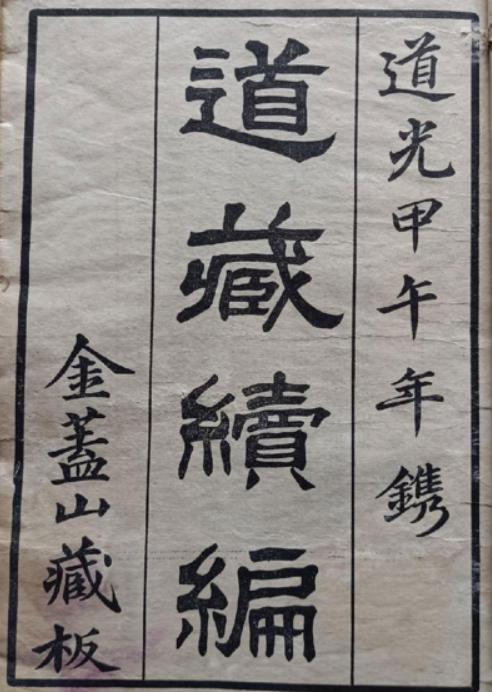 道光甲午年鐫
道藏續編
金蓋山藏板